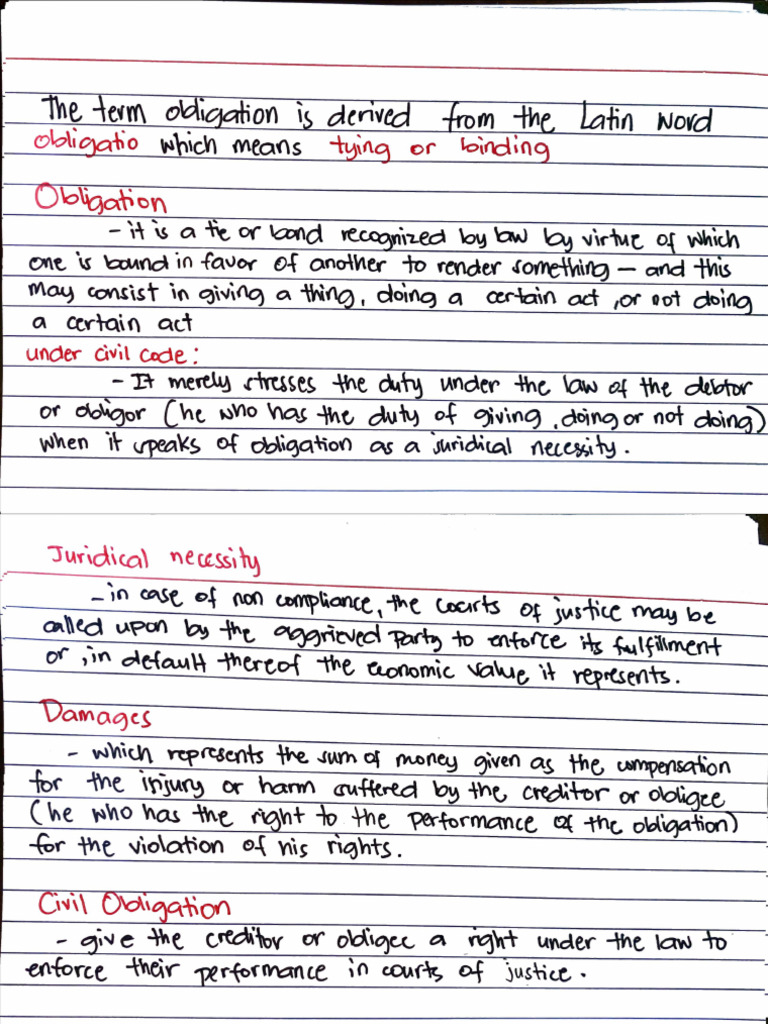 The term obligation is derived from the Latin word
obligatio which means tying or binding
Obligation
- it is a tie or bond recognized by law by virtue of which
one is bound in favor of another to render something – and this
may consist in giving a thing, doing a certain act, or not doing
a certain act
under civil code:
- It merely stresses the duty under the law of the debtor
or obligor (he who has the duty of giving, doing or not doing)
when it speaks of obligation as a juridical necessity.
Juridical necessity
- in case of non compliance, the courts of justice may be
called upon by the aggrieved party to enforce its fulfillment
or, in default thereof the economic value it represents.
Damages
- which represents the sum of money given as the compensation
for the injury or harm suffered by the creditor or obligee
(he who has the right to the performance of the obligation)
for the violation of his rights.
Civil Obligation
- give the creditor or obligee a right under the law to
enforce their performance in courts of justice.